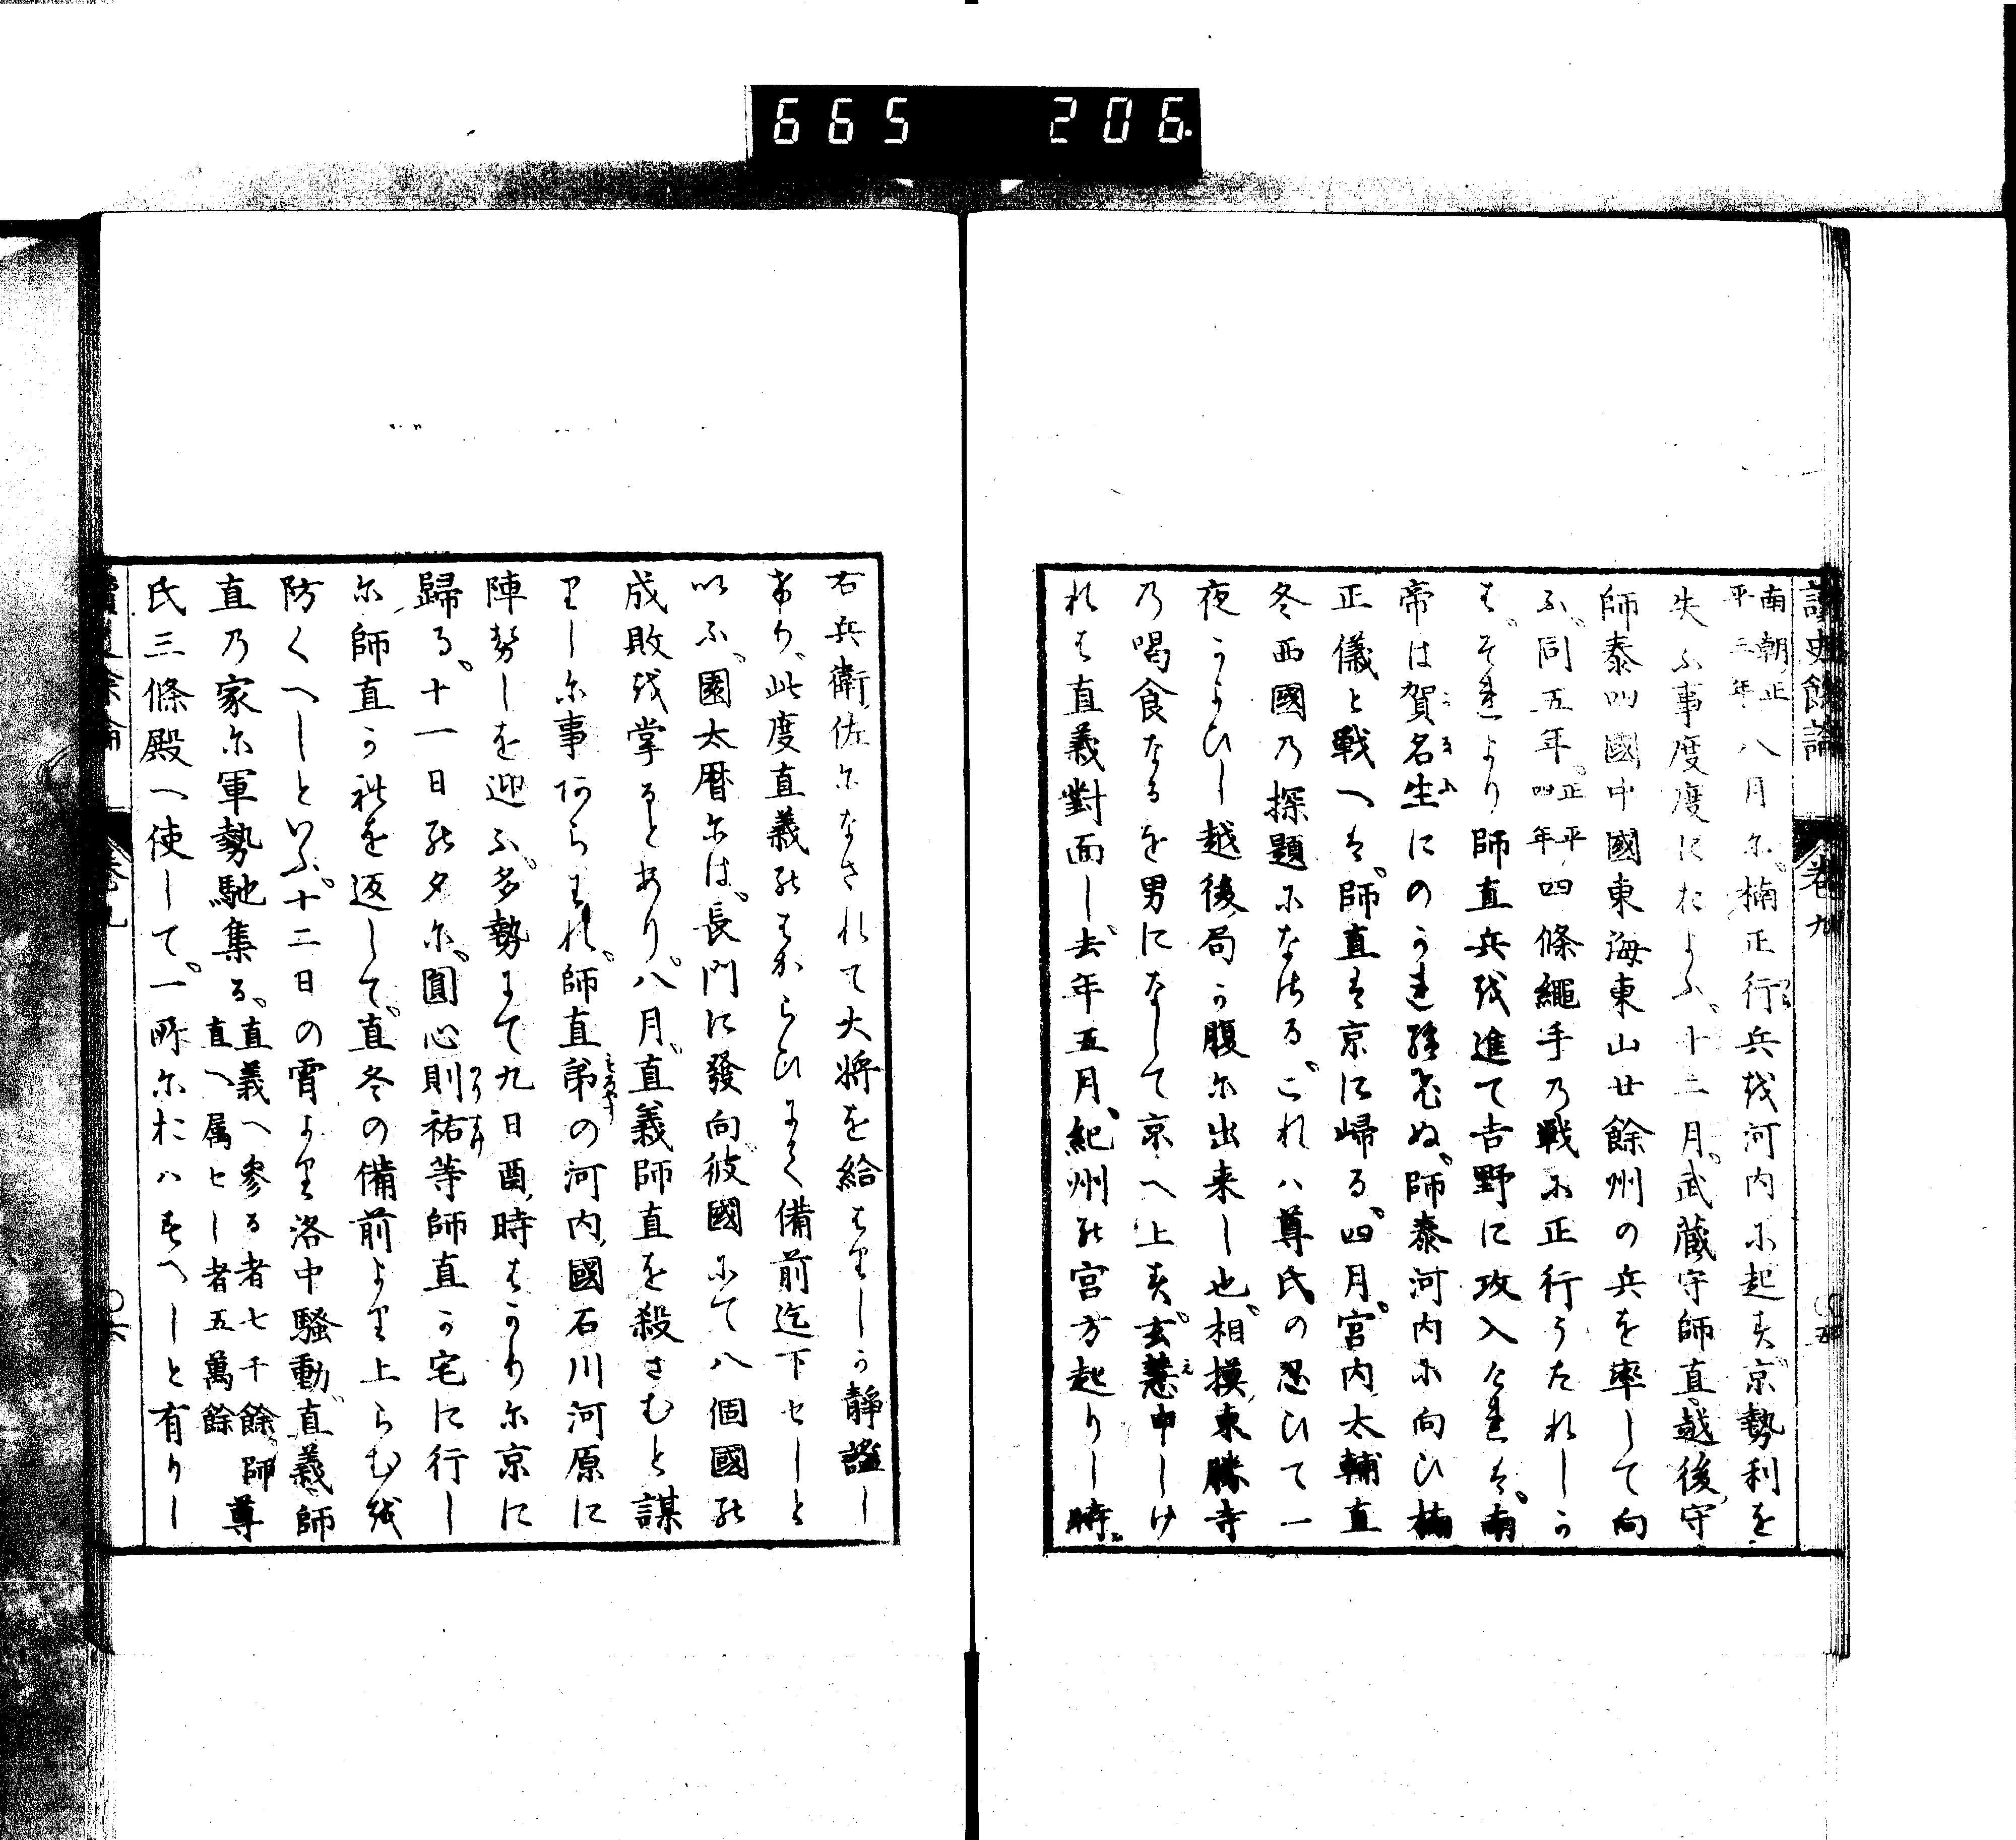 665 206
讀史餘論 卷九
南朝正平三年八月尓楠正行兵越河内尓起す京勢利を
失ふ事度度におよふ十二月武蔵守師直越後守
師泰四國中國東海東山廿餘州の兵を率して向
ふ同五年正平四年四條繩手乃戰尓正行うたれしか
はそれより師直兵越進て吉野に攻入けれは南
帝は賀名生にのかれ給ひぬ師泰河内尓向ひ楠
正儀と戰へは師直は京に帰る四月宮内太輔直
冬西國乃探題尓なさるこれハ尊氏の忍ひて一
夜かよひし越後局か腹尓出来し也相摸東勝寺
乃喝食なるを男になして京へ上す玄慧申しけ
れは直義對面し去年五月紀州能宮方起りし時
右兵衛佐尓なされて大将を給はりしか静謐し
あり此度直義能はからひにて備前迄下セしと
以ふ園太暦尓は長門に發向彼國尓て八個國能
成敗越掌るとあり八月直義師直を殺さむと謀
りし尓事阿らはれ師直弟の河内國石川河原に
陣勢しを迎ふ多勢にて九日酉時はかり尓京に
歸る十一日能夕尓圓心則祐等師直か宅に行し
尓師直か礼を返して直冬の備前より上らむ越
防くへしといふ十二日の宵より洛中騷動直義師
直乃家尓軍勢馳集る直義へ參る者七千餘師直へ属セし者五萬餘尊
氏三條殿へ使して一所尓おハすへしと有りし